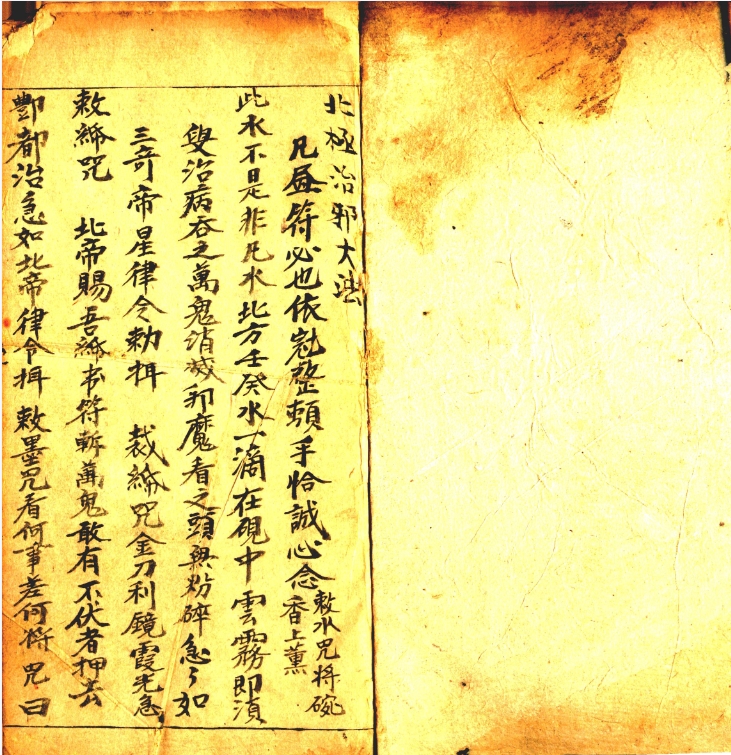 北極治邪大法
凡昼符必也依冠整頓手恰誠心念敕水咒將硯香上薰
此水不是非凡水北方壬癸水一滴在硯中雲霧即湏
臾治病吞之萬鬼消滅邪魔看之頭無粉碎急々如
三奇帝星律令勅揖 裁紙咒金刀利鏡霞光急
敕紙咒 北帝賜吾紙書符斬萬鬼敢有不伏者押去
酆都治急如北帝律令揖敕墨咒看何事差何將咒曰